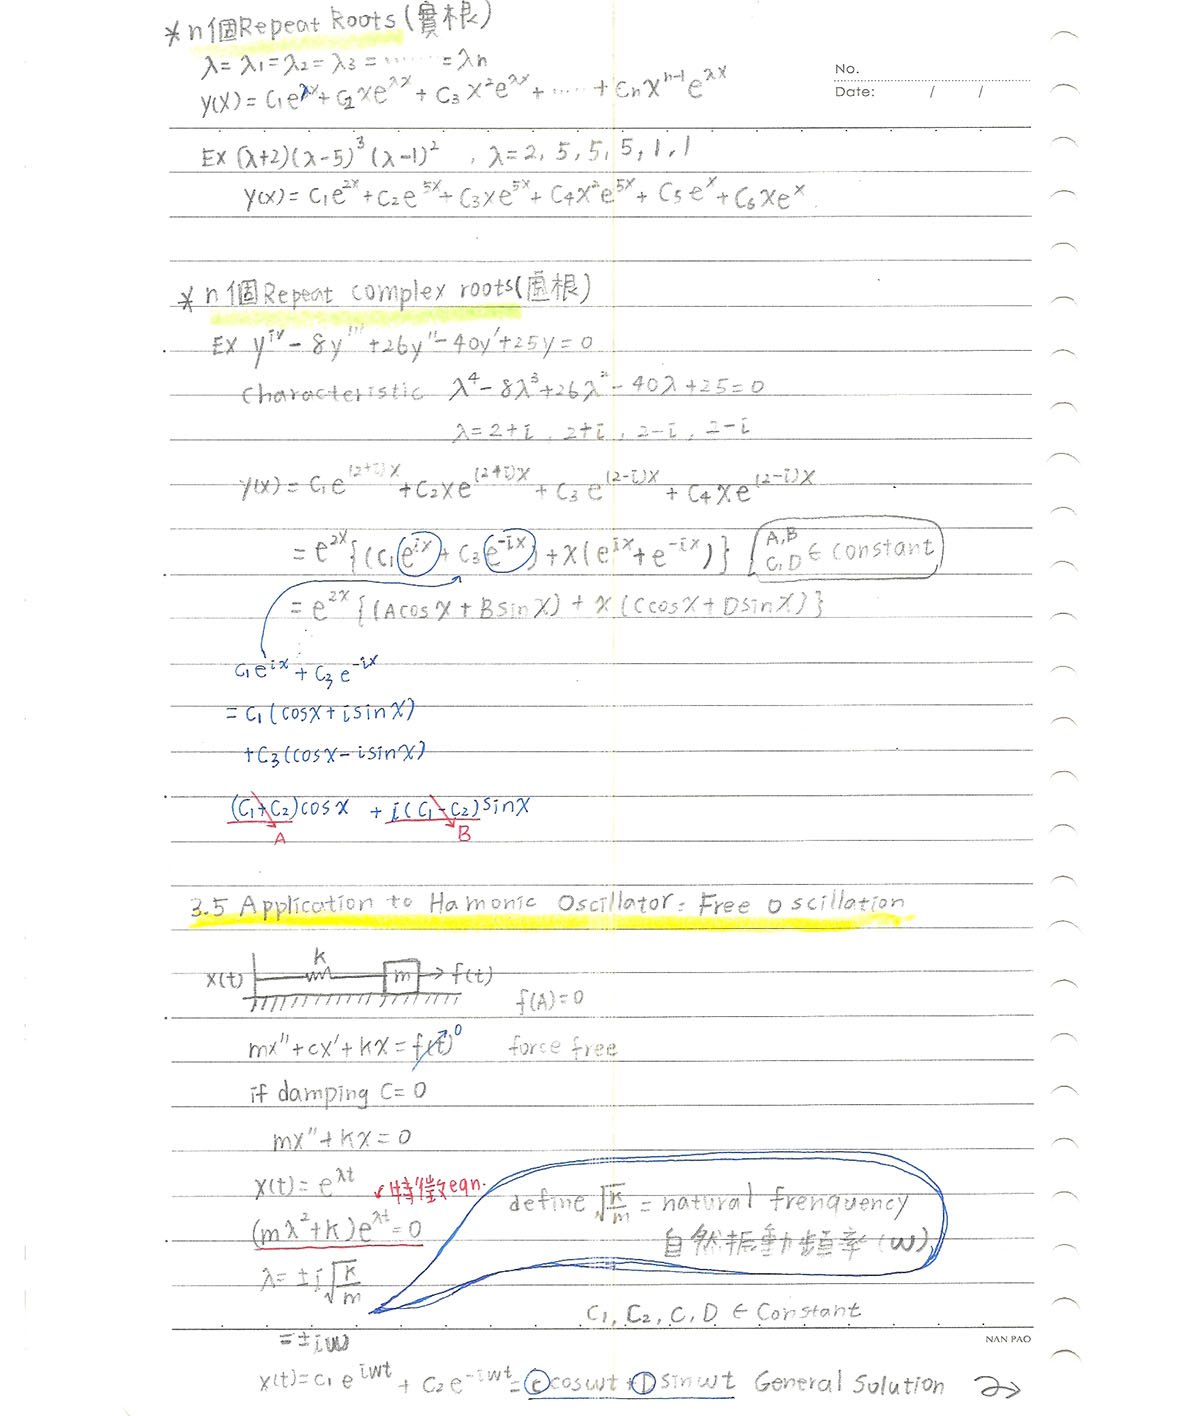 * n個Repeat Roots (實根)
λ = λ1 = λ2 = λ3 = ...... = λn
No.
y(x) = C1e^λx + C2xe^λx + C3x²e^λx + ..... + Cnx^n-1e^λx
Date: / /
EX (λ+2)(λ-5)³(λ-1)² , λ = 2, 5, 5, 5, 1, 1
y(x) = C1e^2x + C2e^5x + C3xe^5x + C4x²e^5x + C5e^x + C6xe^x
* n個Repeat complex roots(虛根)
EX y^iv - 8y''' + 26y'' - 40y' + 25y = 0
characteristic λ⁴ - 8λ³ + 26λ² - 40λ + 25 = 0
λ = 2+i , 2+i , 2-i , 2-i
y(x) = C1e^(2+i)x + C2xe^(2+i)x + C3e^(2-i)x + C4xe^(2-i)x
= e^2x{(C1e^ix + C3e^-ix) + x(e^ix + e^-ix)} A,B C,D ∈ constant
= e^2x{(Acosx + Bsinx) + x(Ccosx + Dsinx)}
C1e^ix + C3e^-ix
= C1(cosx + isinx)
+C3(cosx - isinx)
(C1+C2)cosx + i(C1-C2)sinx
A B
3.5 Application to Hamonic Oscillator: Free oscillation
k
x(t) m → f(t)
f(A) = 0
mx'' + cx' + kx = f(t) 0 force free
if damping C = 0
mx'' + kx = 0
x(t) = e^λt ↙特徵eqn.
(mλ²+k)e^λt = 0
define √k/m = natural frenquency
自然振動頻率(ω)
λ = ±i√k/m
C1, C2, C, D ∈ Constant
= ±iω
NAN PAO
x(t) = C1e^iωt + C2e^-iωt = Ccosωt + Dsinωt General Solution